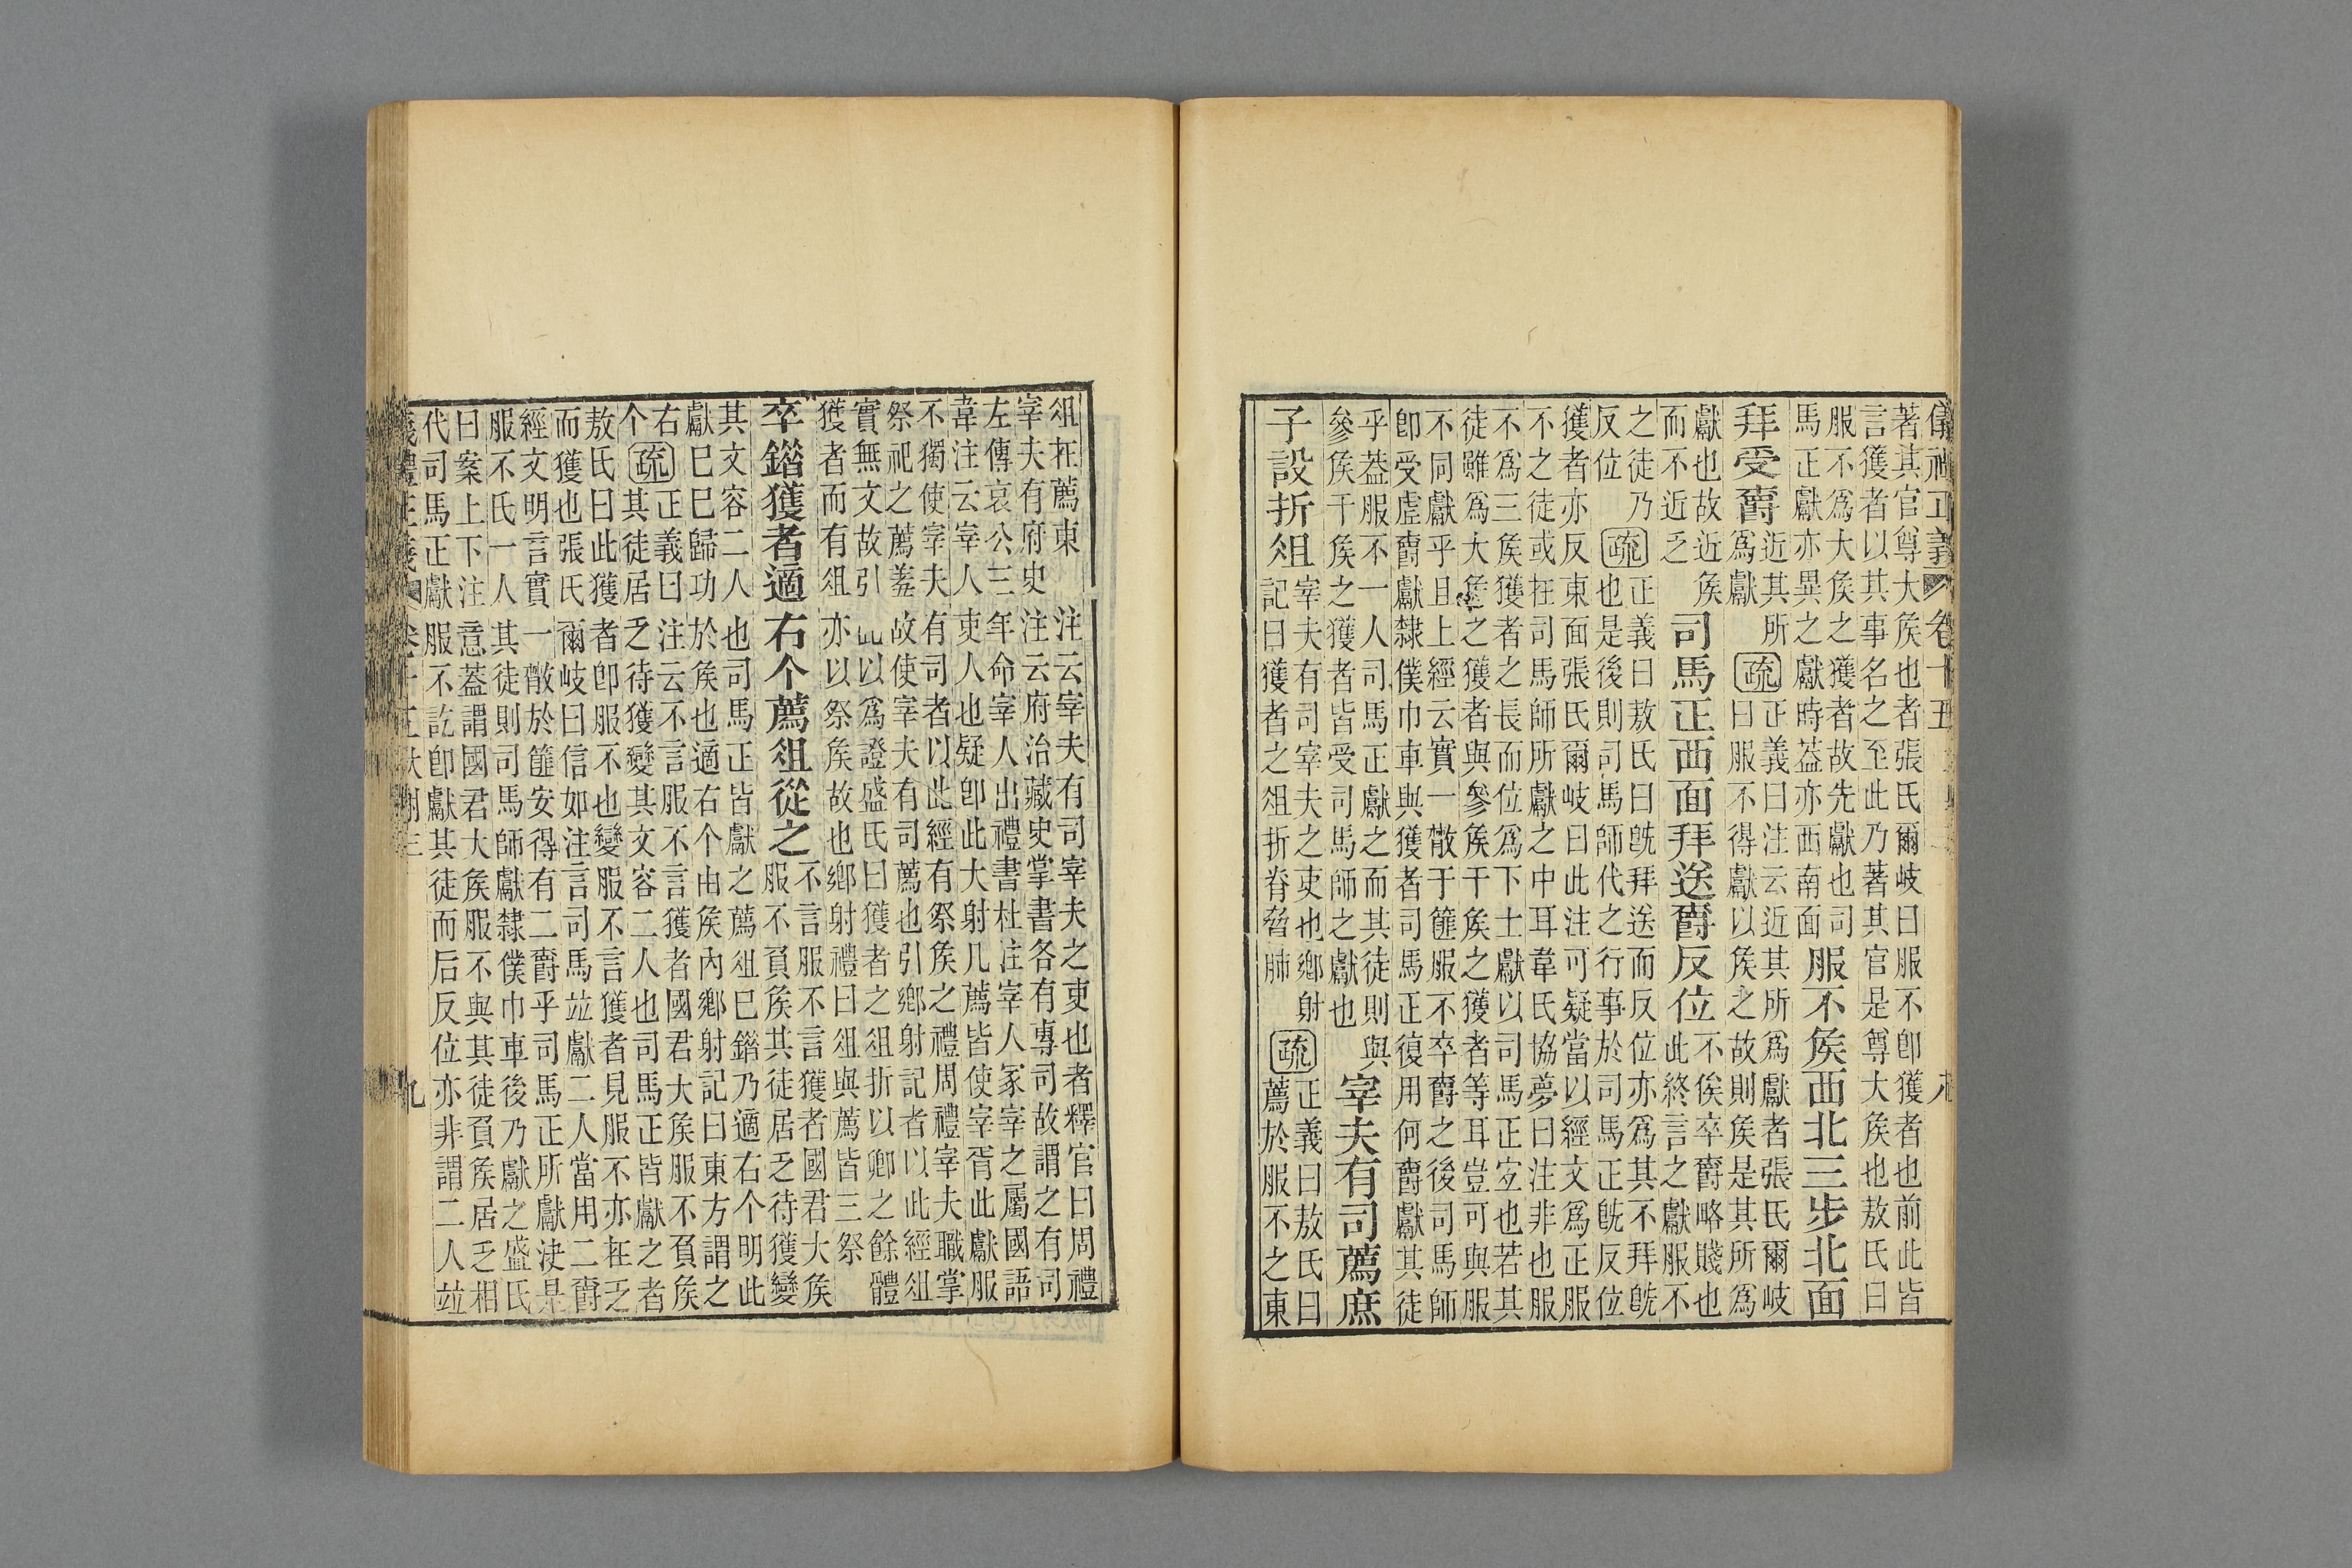 儀禮正義 卷十五
著其官尊大矦也者張氏爾岐曰服不卽獲者也前此皆
言獲者以其事名之至此乃著其官是尊大矦也敖氏曰
服不爲大矦之獲者故先獻也司
馬正獻亦異之獻時葢亦西南面
服不矦西北三步北面
拜受爵
近其所
爲獻
疏
正義曰注云近其所爲獻者張氏爾岐
曰服不得獻以矦之故則矦是其所爲
獻也故近矦
而不近乏
司馬正西面拜送爵反位
不俟卒爵略賤也
此終言之獻服不
之徒乃
反位
疏
正義曰敖氏曰旣拜送而反位亦爲其不拜旣
也是後則司馬師代之行事於司馬正旣反位
獲者亦反東面張氏爾岐曰此注可疑當以經文爲正服
不之徒或在司馬師所獻之中耳韋氏協夢曰注非也服
不爲三矦獲者之長而位爲下士獻以司馬正宐也若其
徒雖爲大矦之獲者與參矦干矦之獲者等耳豈可與服
不同獻乎且上經云實一散于篚服不卒爵之後司馬師
卽受虛爵獻隸僕巾車與獲者司馬正復用何爵獻其徒
乎葢服不一人司馬正獻之而其徒則與
參矦干矦之獲者皆受司馬師之獻也
宰夫有司薦庶
子設折俎
宰夫有司宰夫之吏也鄉射
記曰獲者之俎折脊脅肺
疏
正義曰敖氏曰
薦於服不之東
俎在薦東
注云宰夫有司宰夫之吏也者釋官曰周禮
宰夫有府史
注云府治藏史掌書各有專司故謂之有司
左傳哀公三年命宰人出禮書杜注宰人冢宰之屬國語
韋注云宰人吏人也疑卽此大射几薦皆使宰胥此獻服
不獨使宰夫有司者以此經有祭矦之禮周禮宰夫職掌
祭祀之薦羞故使宰夫有司薦也引鄉射記者以此經俎
實無文故引此以爲證盛氏曰獲者之俎折以卿之餘體
獲者而有俎亦以祭矦故也鄉射禮曰俎與薦皆三祭
卒錯獲者適右个薦俎從之
不言服不言獲者國君大矦
服不負矦其徒居乏待獲變
其文容二人也司馬正皆獻之薦俎已錯乃適右个明此
獻已已歸功於矦也適右个由矦內鄉射記曰東方謂之
右
个
疏
正義曰注云不言服不言獲者國君大矦服不負矦
其徒居乏待獲變其文容二人也司馬正皆獻之者
敖氏曰此獲者卽服不也變服不言獲者見服不亦在乏
而獲也張氏爾岐曰信如注言司馬竝獻二人當用二爵
經文明言實一散於篚安得有二爵乎司馬正所獻決是
服不氏一人其徒則司馬師獻隸僕巾車後乃獻之盛氏
曰案上下注意葢謂國君大矦服不與其徒負矦居乏相
代司馬正獻服不訖卽獻其徒而后反位亦非謂二人竝
九